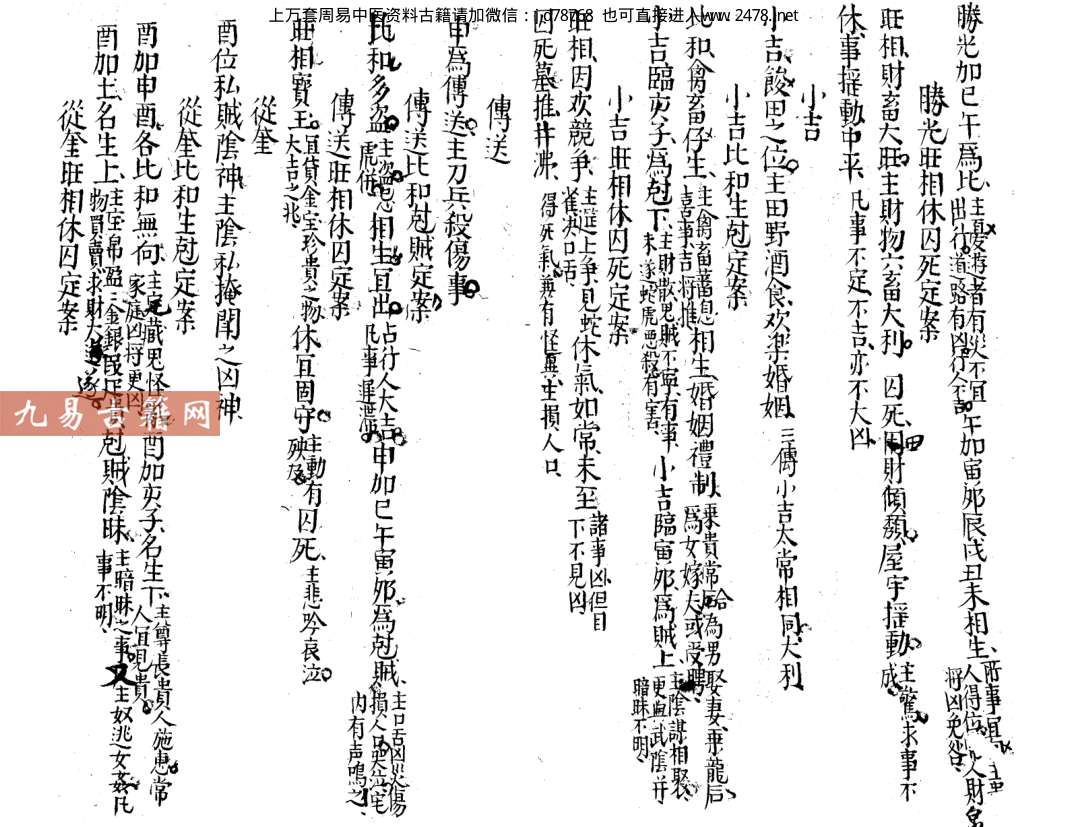 上万套周易中医资料古籍请加微信：
也可直接进入www.2478.net
勝光加巳午為比、主憂游者有災不宜出行、道路有凶、行人不吉 午加寅邜辰戌丑未相生、所事宜 人得位 財 將凶免咎
勝光旺相休囚死定案
旺相財畜大旺、主財物六畜大利、囚死田財傾頽屋宇摇動、主驚求事不成
休、事摇動中平、凡事不定、不吉、亦不大凶
小吉
小吉、餕田之位、主田野酒食、欢楽婚姻、三傳小吉太常相同大利
小吉比和生尅定案
比和、禽畜仔生、主禽畜蕃息、喜事、吉將推 相生婚姻禮制、乘貴常后合為男娶妻、乗龍后為女嫁夫或受聘
小吉臨亥子為尅下、主財散鬼賊不寧有事、未逐蛇虎悪殺有害 小吉臨寅邜為賊上、主陰謀相娶、更與武陰并暗昧不明、
小吉旺相休囚死定案
旺相、因欢競争、主筵上争、見蛇雀決口舌 休氣如常、未至 諸事凶、但目下不見凶
囚死墓推井沸、得死氣兼有怪異、主損人口、
傳送
申為傳送主刀兵殺傷事
傳送比和尅賊定案
比和多盗、主盗 虎併 相生宜出、占行人大吉、凡事遲滞 申加巳午寅邜為尅賊、主口舌凶災傷損人口哭泣宅内有声鳴之
傳送旺相休囚定案
旺相寳玉、宜貸金宝珍貴之物、大吉之兆 休宜固守、主動有殃及 囚死、主悲吟哀泣
從奎
酉位私賊陰神主陰私掩閉之凶神、
從奎比和生尅定案
酉加申酉各比和無向、主宅藏鬼怪 家庭凶將更凶 酉加亥子、名生下、主尊長貴人施惠常人宜見貴
酉加土、名生上、主宝帛盈 金銀 物買賣求財大遂 尅賊陰昧、主暗昧之事又主奴逃女姦凡事不明、
從奎旺相休囚定案
九易古籍网